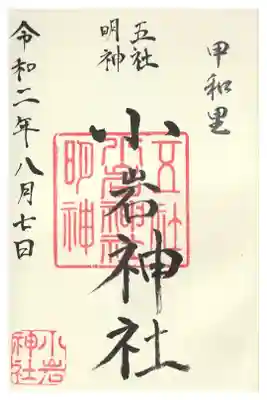 甲和里
五社
明神
小岩神社
令和二年八月七日
五社
小岩神社
明神
小岩
神社